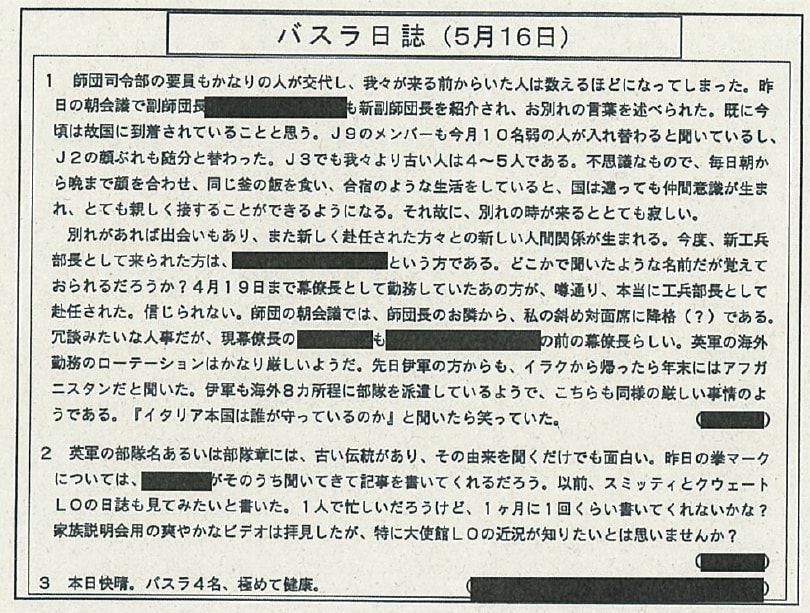 バスラ日誌（5月16日）
1　師団司令部の要員もかなりの人が交代し、我々が来る前からいた人は数えるほどになってしまった。昨
日の朝会議で副師団長も新副師団長を紹介され、お別れの言葉を述べられた。既に今
頃は故国に到着されていることと思う。J9のメンバーも今月10名弱の人が入れ替わると聞いているし、
J2の顔ぶれも随分と替わった。J3でも我々より古い人は4～5人である。不思議なもので、毎日朝か
ら晩まで顔を合わせ、同じ釜の飯を食い、合宿のような生活をしていると、国は違っても仲間意識が生ま
れ、とても親しく接することができるようになる。それ故に、別れの時が来るととても寂しい。
別れがあれば出会いもあり、また新しく赴任された方々との新しい人間関係が生まれる。今度、新工兵
部長として来られた方は、という方である。どこかで聞いたような名前だが覚えて
おられるだろうか？4月19日まで幕僚長として勤務していたあの方が、噂通り、本当に工兵部長として
赴任された。信じられない。師団の朝会議では、師団長のお隣から、私の斜め対面席に降格（？）である。
冗談みたいな人事だが、現幕僚長のもの前の幕僚長らしい。英軍の海外
勤務のローテーションはかなり厳しいようだ。先日伊軍の方からも、イラクから帰ったら年末にはアフガ
ニスタンだと聞いた。伊軍も海外8カ所程に部隊を派遣しているようで、こちらも同様の厳しい事情のよ
うである。『イタリア本国は誰が守っているのか』と聞いたら笑っていた。（　）
2　英軍の部隊名あるいは部隊章には、古い伝統があり、その由来を聞くだけでも面白い。昨日の拳マーク
については、がそのうち聞いてきて記事を書いてくれるだろう。以前、スミッティとクウェート
LOの日誌も見てみたいと書いた。1人で忙しいだろうけど、1ヶ月に1回くらい書いてくれないかな？
家族説明会用の爽やかなビデオは拝見したが、特に大使館LOの近況が知りたいとは思いませんか？
（　）
3　本日快晴。バスラ4名、極めて健康。（　）